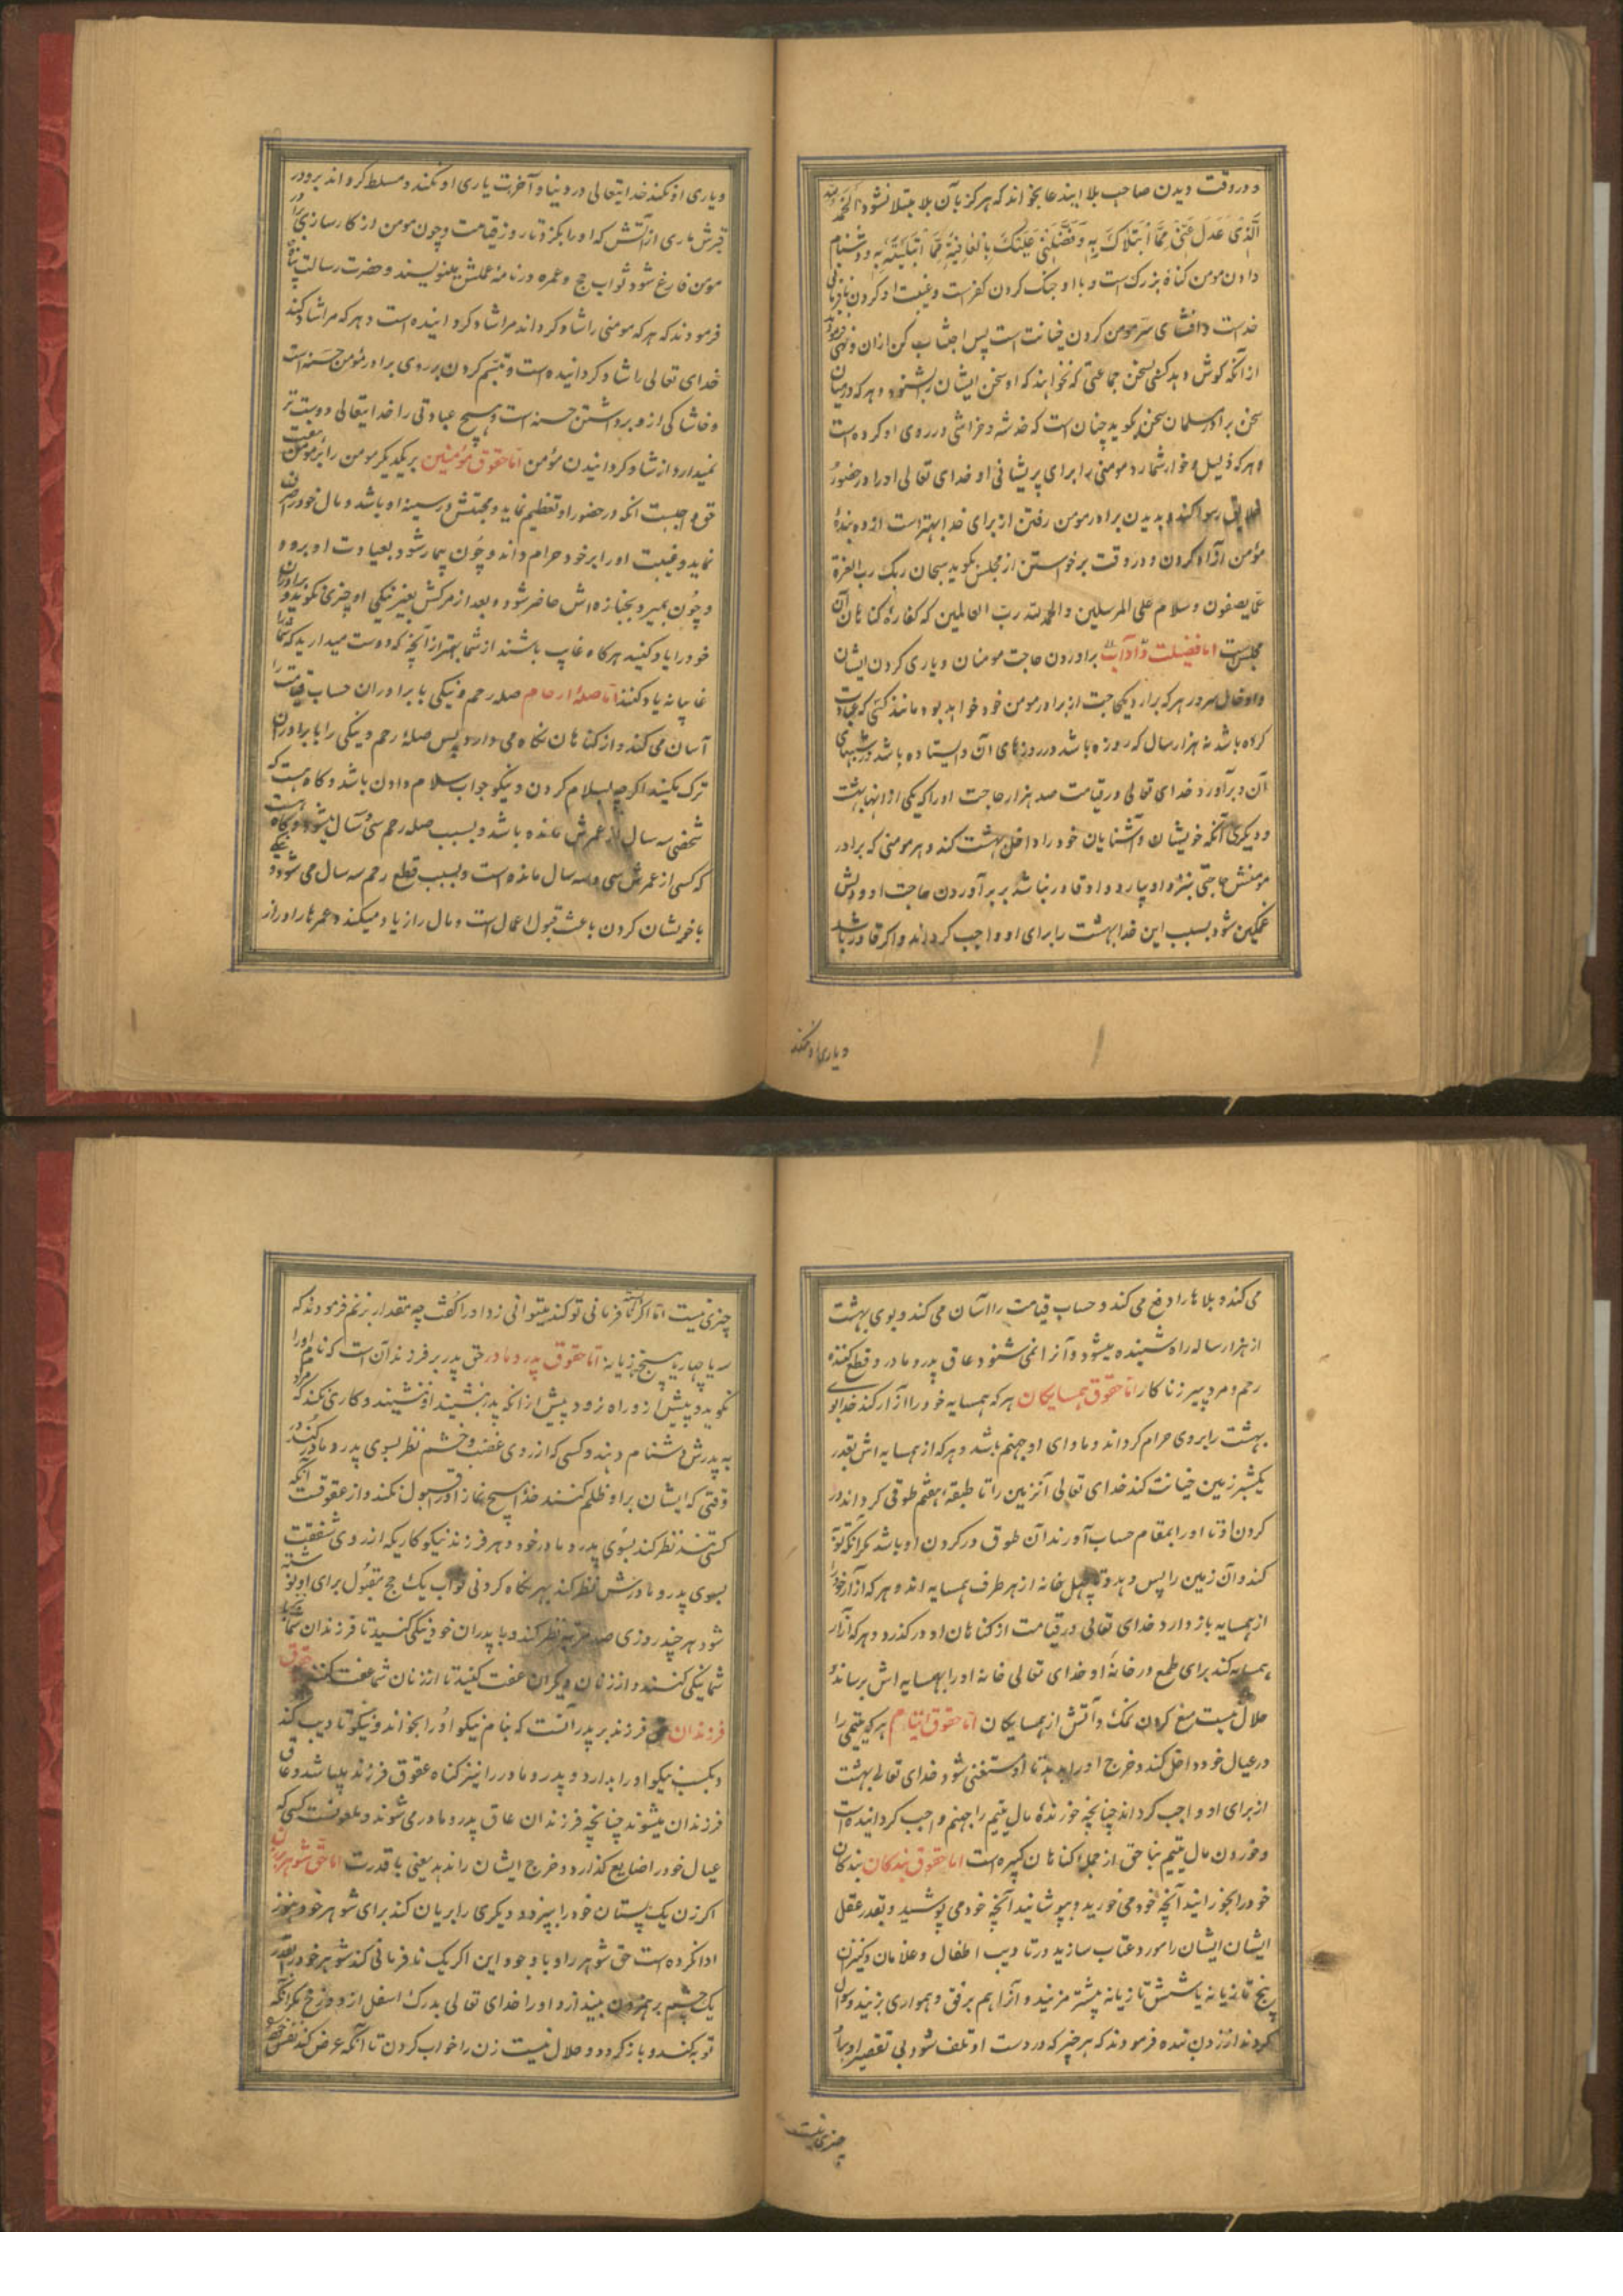 و در وقت دیدن صاحب بلا اینها بخواند که هرگز بآن بلا مبتلا نشود الحمد لله
الَّذِی عَدَلَ عَنّی مِمَّا اَبْتَلاکَ بِهِ وَفَضَّلَنِی عَلَیْکَ بِالْعافِیَةِ مِمَّا اَبْتَلَیْتَهُ بِهِ و دشنام
دادن مومن گناه بزرگ است و با او جنگ کردن کفر است و غیبت او کردن نافرمانی
خداست و افشای سر مومن کردن خیانت است پس اجتناب کن ازان و نهی فرمود
از آنکه گوش دهد کسی بسخن جماعتی که نخواهند که او سخن ایشان را بشنود و هر که درمیان
سخن برادر مسلمان سخن بگوید چنان است که خدشه و خراشی در روی او کرده است
و هر که ذلیل و خوار شمارد مومنی را برای پریشانی او خدای تعالی او را در حضور
خلایق رسوا کند و بدیدن برادر مومن رفتن از برای خدا بهتر است از ده بندهٔ
مؤمن آزاد کردن و در وقت برخواستن از مجلس بگوید سبحان ربک رب العزة
عمّا یصفون و سلام علی المرسلین و الحمد لله رب العالمین که کفاره گناهان آن
مجلس است اما فضیلت و آداب برآوردن حاجت مومنان و یاری کردن ایشان
و ادخال سرور هر که برارد یکحاجت از برادر مومن خود خواهد بود مانند کسی که عبادت
کرده باشد نه هزار سال که روزه باشد در روزهای آن و ایستاده باشد در شبهای
آن و برآورد خدای تعالی در قیامت صد هزار حاجت او را که یکی از انها بهشت
و دیگری آنکه خویشان و آشنایان خود را داخل بهشت کند و هر مومنی که برادر
مومنش حاجتی بنزد او بیارد و او قادر نباشد بر برآوردن حاجت او و دلش
غمگین شود بسبب این خدا بهشت را برای او واجب گرداند و اگر قادر باشد
و یاری او نکند
و یاری او نکند خدایتعالی در دنیا و آخرت یاری او نکند و مسلط گرداند برو در
قبرش ماری از آتش که او را بگزد تا روز قیامت و چون مومن از کارسازی برادر
مومن فارغ شود ثواب حج و عمره در نامهٔ عملش بنویسند و حضرت رسالت پناه
فرمودند که هر که مومنی را شاد گرداند مرا شاد گردانیده است و هر که مرا شاد کند
خدای تعالی را شاد گردانیده است و تبسم کردن بر روی برادر مؤمن حسنه است
و خاشاکی از و برداشتن حسنه است و هیچ عبادتی را خدایتعالی دوست تر
نمیدارد از شاد گردانیدن مؤمن اما حقوق مؤمنین بر یکدیگر مومن را بر مومن هفت
حق واجبست آنکه در حضور او تعظیم نماید و محبتش در سینه او باشد و مال خود را صرف او
نماید و غیبت او را بر خود حرام داند و چون بیمار شود بعیادت او برود
و چون بمیرد بجنازه اش حاضر شود و بعد از مرگش بغیر نیکی او چیزی نگوید و برادران
خود را یاد کنید هرگاه غایب باشند از شما بهتر از آنچه که دوست میدارید که شما را
غایبانه یاد کنند اما صلهٔ ارحام صله رحم و نیکی با برادران حساب قیامت را
آسان می کند و از گناهان نگاه می دارد پس صلهٔ رحم و نیکی را با برادران
ترک مکنید اگرچه بسلام کردن و نیکو جواب سلام دادن باشد و گاه هست که
شخصی سه سال از عمرش مانده باشد و بسبب صله رحم سی و سه سال میشود و گاه هست
که کسی از عمرش سی و سه سال مانده است و بسبب قطع رحم سه سال می شود و نیکی
با خویشان کردن باعث قبول اعمال است و مال را زیاد میکند و عمرها را دراز
می کند و بلاها را دفع می کند و حساب قیامت را آسان می کند و بوی بهشت
از هزار ساله راه شنیده میشود و آنرا نمی شنود عاق پدر و مادر و قطع کننده
رحم و مرد پیر زناکار اما حقوق همسایگان هر که همسایه خود را آزار کند خدا بوی
بهشت را بر وی حرام گرداند و ماوای او جهنم باشد و هر که از همسایه اش بقدر
یکشبر زمین خیانت کند خدای تعالی آنزمین را تا طبقهٔ هفتم طوقی گرداند در
گردن او تا او را بمقام حساب آورند آن طوق در گردن او باشد مگر آنکه توبه
کند و آن زمین را پس دهد و تا چهل خانه از هر طرف همسایه اند و هر که آزار خود را
از همسایه باز دارد خدای تعالی در قیامت از گناهان او درگذرد و هر که آزار
همسایه کند برای طمع در خانهٔ او خدای تعالی خانه او را بهمسایه اش برساند و
حلال نیست منع کردن نمک و آتش از همسایگان اما حقوق یتام هر که یتیمی را
در عیال خود داخل کند و خرج او را بدهد تا او مستغنی شود خدای تعالی بهشت
از برای او واجب گرداند چنانچه خورندهٔ مال یتیم را جهنم واجب گردانیده است
و خوردن مال یتیم بناحق از جملهٔ گناهان کبیره است اما حقوق بندگان بندگان
خود را بخورانید آنچه خود می خورید و بپوشانید آنچه خود می پوشید و بقدر عقل
ایشان ایشان را مورد عتاب سازید در تادیب اطفال و غلامان و کنیزان
پنج تازیانه یا شش تازیانه بیشتر مزنید و آنرا هم برفق و همواری بزنید و سوال
کردند از زدن بنده فرمودند که هر چیز که در دست او تلف شود بی تقصیر او بر او
چیزی نیست
چیزی نیست اما اگر گفته نافرمانی تو کند میتوانی زد او را گفت چه مقدار بزنم فرمودند که
سه یا چهار یا پنج تازیانه اما حقوق پدر و مادر حق پدر بر فرزند آن است که نام او را
نگوید و پیش از و راه نرود و پیش از انکه پدر بنشیند او ننشیند و کاری نکند که مردم
به پدرش دشنام دهند و کسی که از روی غضب و خشم نظر بسوی پدر و مادر کند در
وقتی که ایشان بر او ظلم کنند خدا هیچ نماز او را قبول نکند و از عقوقت آنکه
کسی تند نظر کند بسوی پدر و مادر خود و هر فرزند نیکوکاریکه از روی شفقت
بسوی پدر و مادرش نظر کند بهر نگاه کردنی ثواب یک حج مقبول برای او نوشته
شود هر چند روزی صد مرتبه نظر کند و با پدران خود نیکی کنید تا فرزندان شما با
شما نیکی کنند و از زنان دیگران عفت کنید تا از زنان شما عفت کنند حقوق
فرزندان حق فرزند بر پدر آنست که بنام نیکو او را بخواند و نیکو تادیب کند
و بکسب نیکو او را بدارد و پدر و مادر را نیز گناه عقوق فرزند میباشد و عاق
فرزندان میشوند چنانچه فرزندان عاق پدر و مادر می شوند و ملعونست کسی که
عیال خود را ضایع گذارد و خرج ایشان را ندهد یعنی با قدرت اما حق شوهر بر زن
اگر زن یک پستان خود را بپزد و دیگری را بریان کند برای شوهر خود هنوز
ادا نکرده است حق شوهر را و با وجود این اگر یک نافرمانی کند شوهر خود را بقدر
یک چشم بر همزدن بیندازد او را خدای تعالی بدرک اسفل از دوزخ مگر آنکه
توبه کند و باز گردد و حلال نیست زن را خواب کردن تا آنکه عرض کند نفس خود